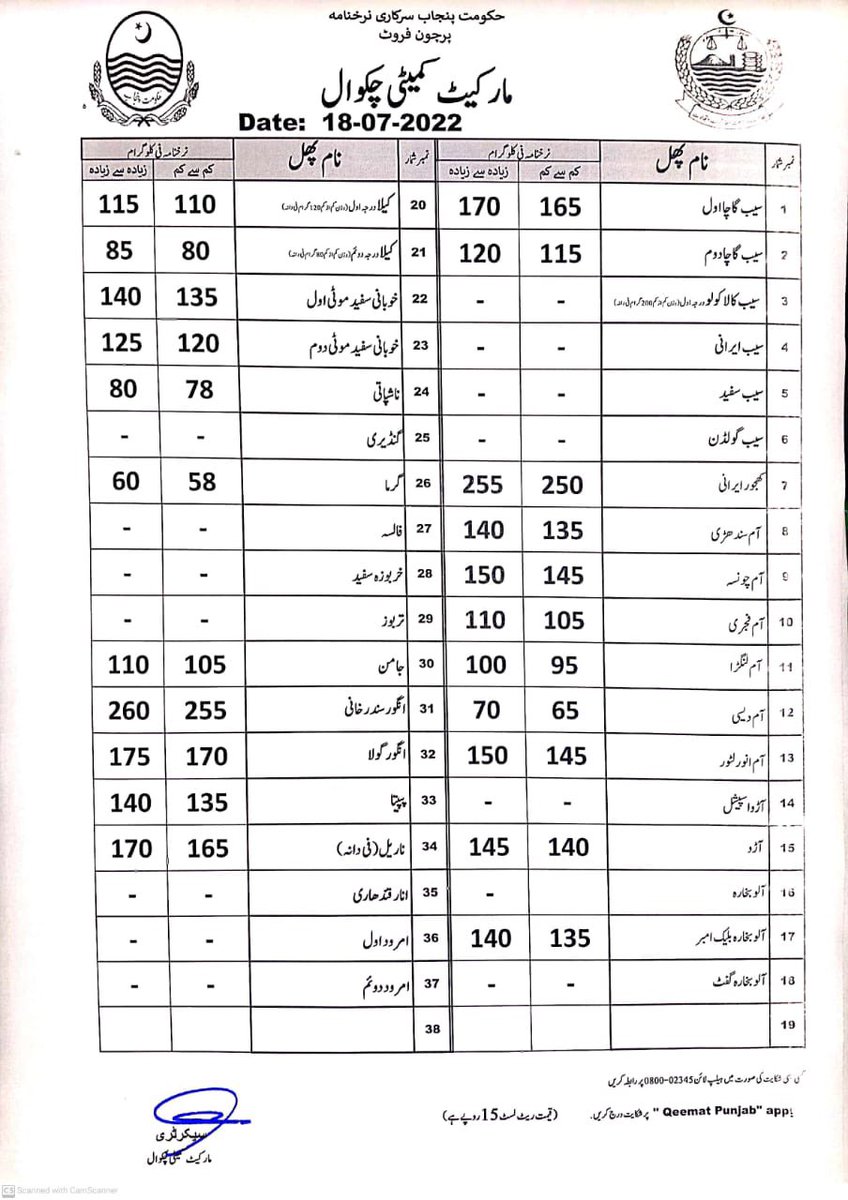 حکومت پنجاب سرکاری نرخنامہ
پرچون فروٹ
مارکیٹ کمیٹی چکوال
Date: 18-07-2022
نمبر شمار نام پھل نرخنامہ فی کلوگرام نمبر شمار نام پھل نرخنامہ فی کلوگرام
کم سے کم زیادہ سے زیادہ کم سے کم زیادہ سے زیادہ
1 سیب گاچا اول 165 170 20 کیلا درجہ اول (وزن کم از کم 120 گرام فی دانہ) 110 115
2 سیب گاچا دوم 115 120 21 کیلا درجہ دوئم (وزن کم از کم 80 گرام فی دانہ) 80 85
3 سیب کالا کولو درجہ اول (وزن کم از کم 200 گرام فی دانہ) - - 22 خوبانی سفید موٹی اول 135 140
4 سیب ایرانی - - 23 خوبانی سفید موٹی دوم 120 125
5 سیب سفید - - 24 ناشپاتی 78 80
6 سیب گولڈن - - 25 گنڈیری - -
7 کھجور ایرانی 250 255 26 گرما 58 60
8 آم سندھڑی 135 140 27 فالسہ - -
9 آم چونسہ 145 150 28 خربوزہ سفید - -
10 آم فجری 105 110 29 تربوز - -
11 آم لنگڑا 95 100 30 جامن 105 110
12 آم دیسی 65 70 31 انگور سندرخانی 255 260
13 آم انور لٹور 145 150 32 انگور گولا 170 175
14 آڑو اسپیشل - - 33 پپیتا 135 140
15 آڑو 140 145 34 ناریل (فی دانہ) 165 170
16 آلو بخارہ - 35 انار قندھاری - -
17 آلو بخارہ بلیک امبر 135 140 36 امرود اول - -
18 آلو بخارہ گفٹ - - 37 امرود دوئم - -
19 38
کسی شکایت کی صورت میں ہیلپ لائن 0800-02345 پر رابطہ کریں
"Qeemat Punjab" app پر شکایت درج کریں۔ (قیمت ریٹ لسٹ 15 روپے ہے)
سیکرٹری
مارکیٹ کمیٹی چکوال
CS Scanned with CamScanner